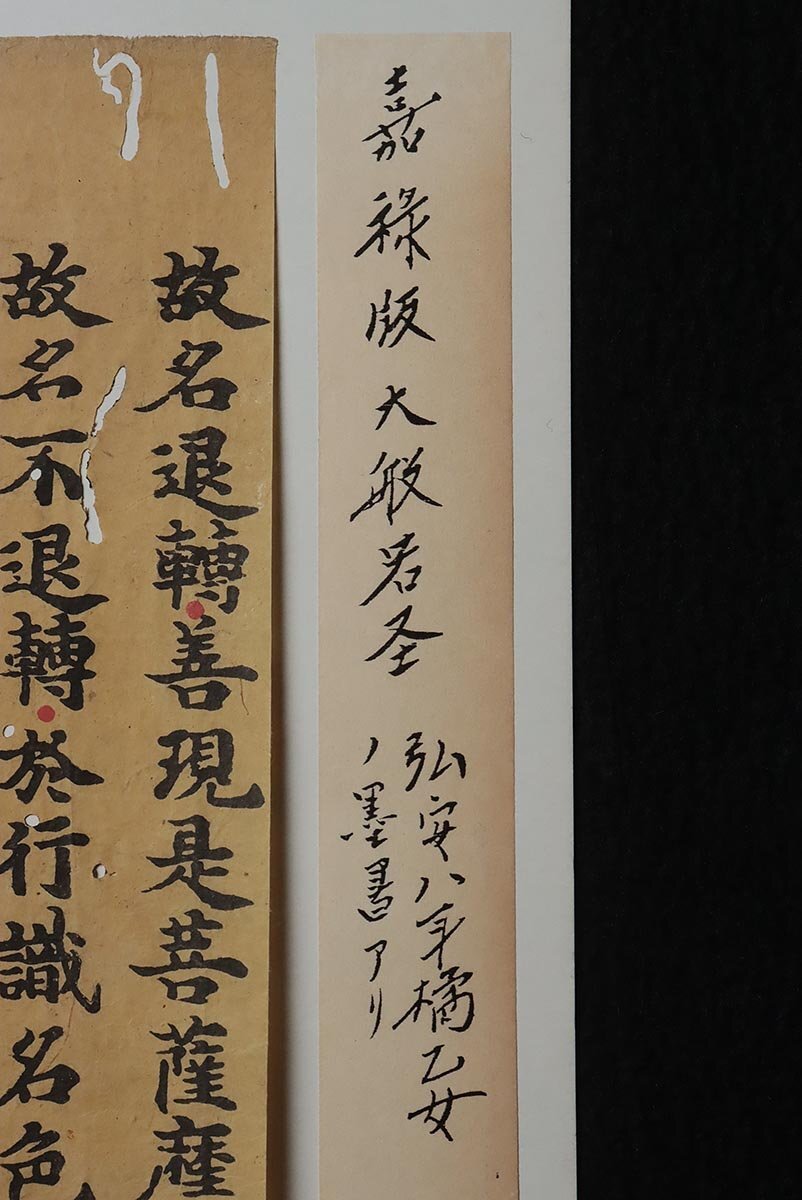 嘉祿版大般若圣
弘安八年橘乙女
ノ墨書アリ
故名退轉善現是菩薩
故名不退轉於行識名色